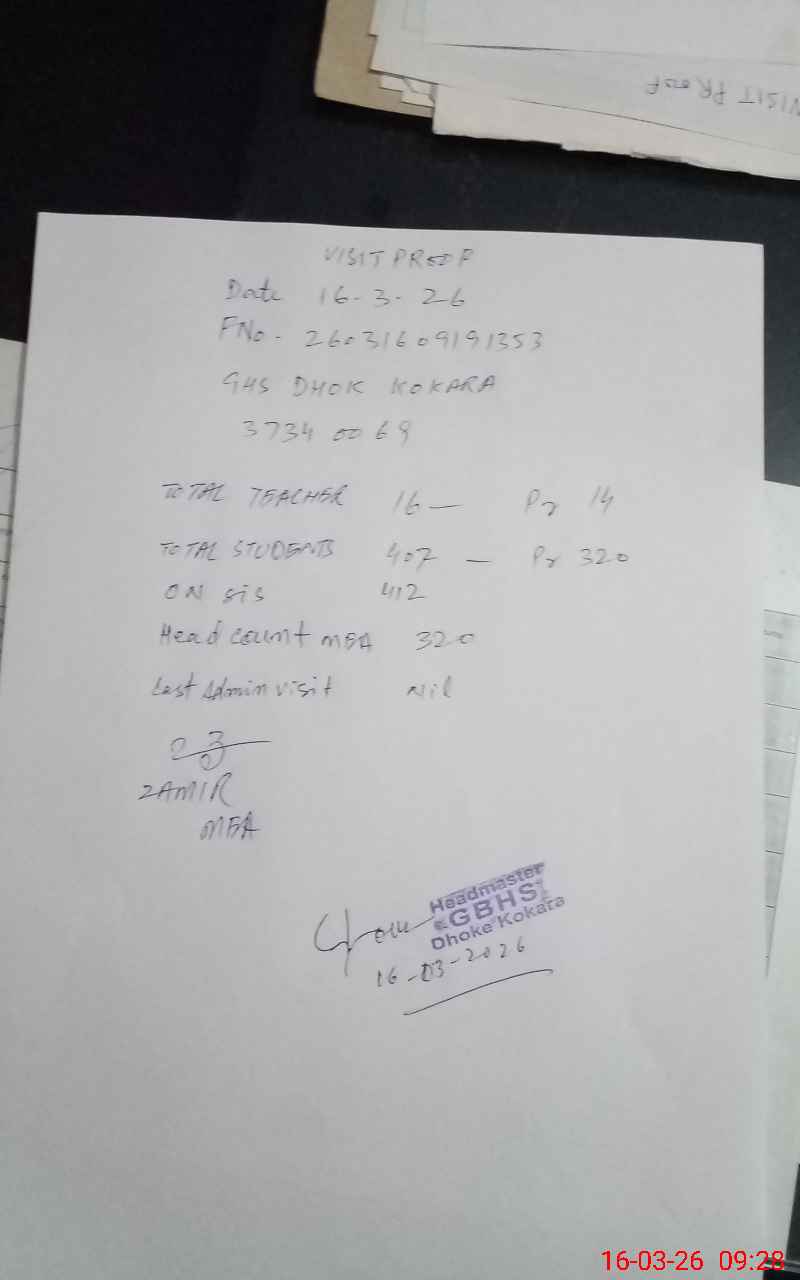 VISIT PROOF
VISIT PROOF
Date 16-3-26
FNo. 26031609191353
GHS DHOK KOKARA
37340069
TOTAL TEACHER 16 — Pr 14
TOTAL STUDENTS 407 — Pr 320
ON SIS 412
Head count MEA 320
Last Admin visit Nil
ZAMIR
MEA
Headmaster
GBHS
Dhoke Kokara
16-03-2026
16-03-26 09:28